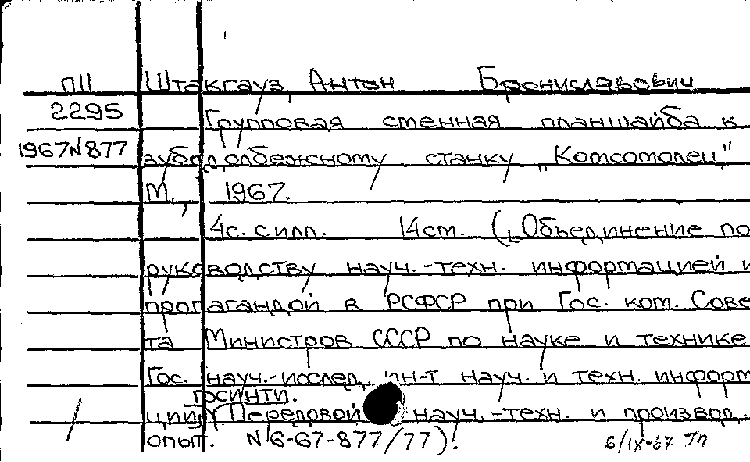 ПII Штакгауз, Антон Брониславович
2295 Групповая сменная планшайба к
1967 N 877 зубодолбежному станку „Комсомолец"
М., 1967.
4с. с илл. 14см. (Объединение по
руководству науч.-техн. информацией и
пропагандой в РСФСР при Гос. ком. Сове-
та Министров СССР по науке и технике
Гос. науч.-исслед. ин-т науч. и техн. информ
ГОСИНТИ.
ции/ Передовой науч.-техн. и произвол.
опыт. N 6-67-877/77).
6/IX-67